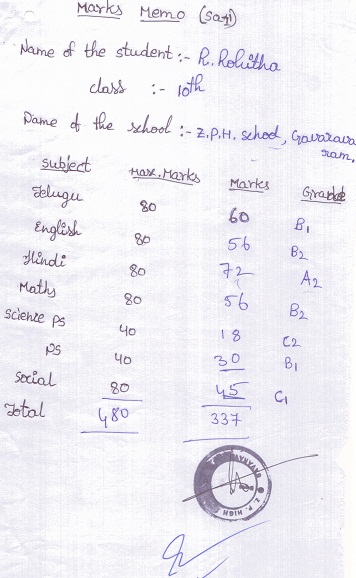 Marks Memo (SA1)
Name of the student :- R. Rohitha
class :- 10th
Name of the school :- Z.P.H. school, Gavarava
ram,
Subject Max. Marks Marks Grade
Telugu 80 60 B1
English 80 56 B2
Hindi 80 72 A2
Maths 80 56 B2
Science PS 40 18 C2
PS 40 30 B1
Social 80 45 C1
Total 480 337
Z. P. HIGH